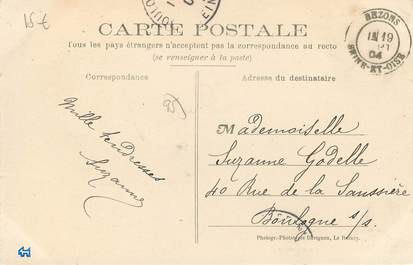 15 €
CARTE POSTALE
Tous les pays étrangers n'acceptent pas la correspondance au recto
(se renseigner à la poste)
BEZONS
19
04
SEINE-ET-OISE
Correspondance
Adresse du destinataire
95
Mille tendresses
Suzanne
Mademoiselle
Suzanne Godelle
40 Rue de la Saussière
Boulogne s/s.
Photogr.-Phototy. Le Raincy.